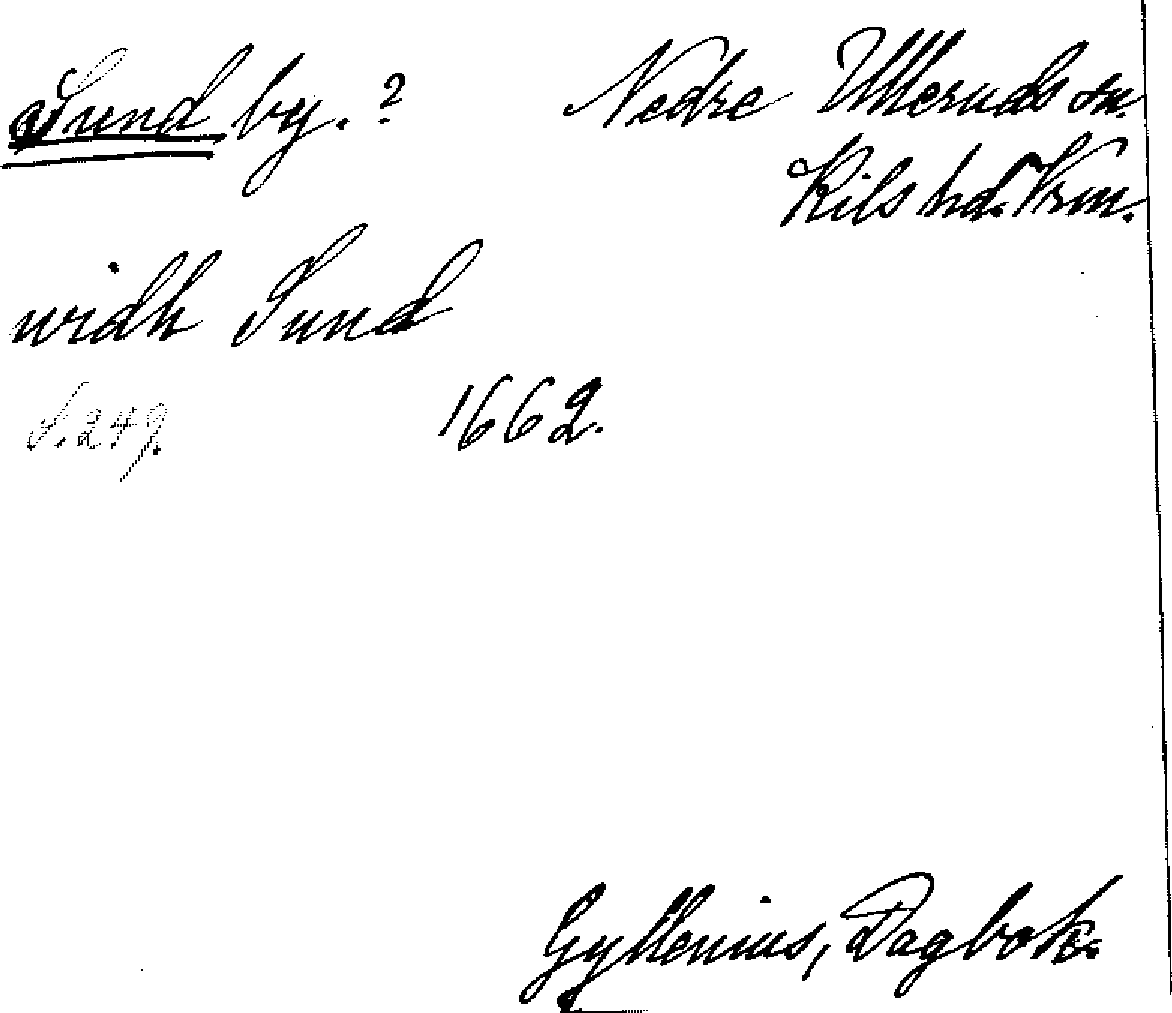 Sund by. ? Nedre Ulleruds sn.
Kils hd. Vrm.
widh Sund
S. 249. 1662.
Gyllenius, Dagbok.